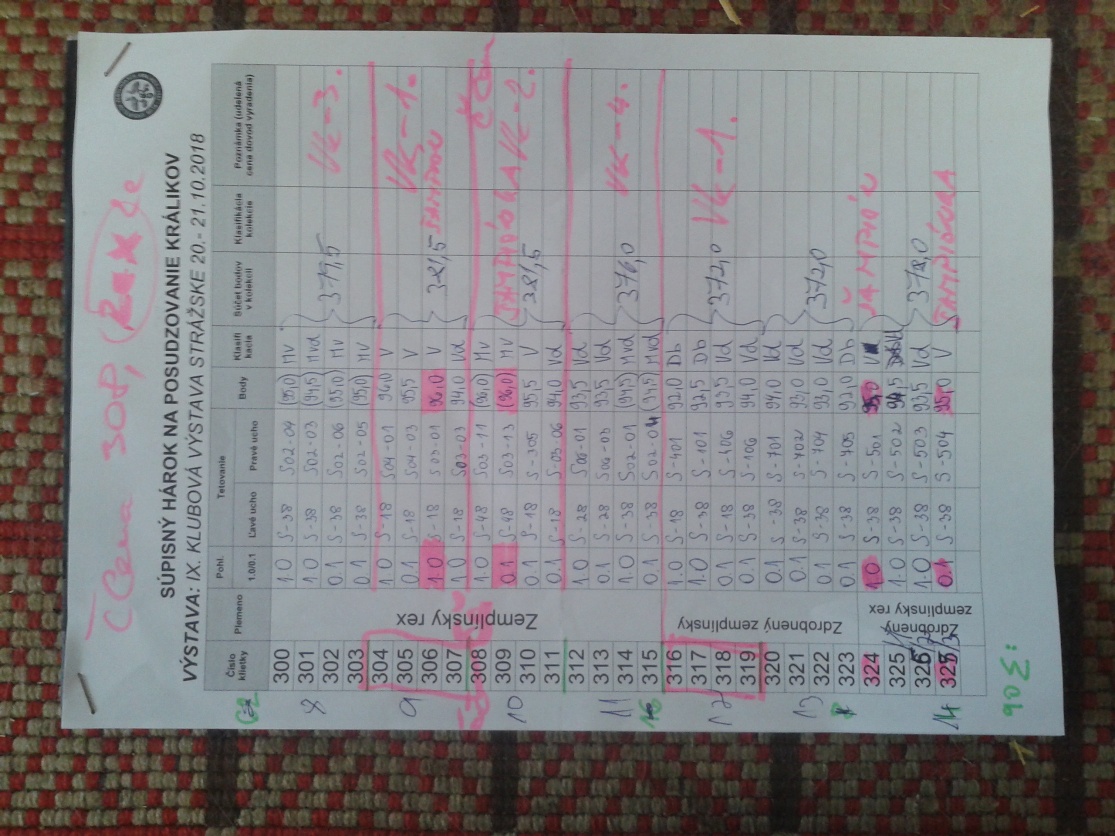 Cena ZOP,
SÚPISNÝ HÁROK NA POSUDZOVANIE KRÁLIKOV
VÝSTAVA: IX. KLUBOVÁ VÝSTAVA STRÁŽSKE 20.- 21.10.2018
Číslo klietky Plemeno Pohl. 1.0/0.1 Tetovanie Ľavé ucho Pravé ucho Body Klasifi kácia Súčet bodov v kolekcii Klasifikácia kolekcie Poznámka (udelená cena dôvod vyradenia)
300 1.0 S-38 S02-04 (95,0) MV
8 301 1.0 S-38 S02-03 (94,5) MVd
302 0.1 S-38 S02-06 (95,0) MV 379,5 VK-3.
303 0.1 S-38 S02-05 (95,0) MV
304 1.0 S-18 S04-01 96,0 V
9 305 0.1 S-18 S04-03 95,5 V VK-1.
306 1.0 S-18 S03-01 96,0 V 381,5
307 1.0 S-18 S03-03 94,0 Vd
Zemplínsky rex
308 1.0 S-48 S03-11 (96,0) MV
309 0.1 S-48 S03-13 (96,0) MV VK-2.
10 310 0.1 S-18 S-305 95,5 V 381,5
311 0.1 S-18 S-03-06 94,0 Vd
312 1.0 S-28 S06-01 93,5 Vd
11 313 0.1 S-28 S06-03 93,5 Vd
314 1.0 S-38 S02-01 (94,5) MVd 376,0 VK-4.
315 0.1 S-38 S02-04 (94,5) MVd
316 1.0 S-18 S-401 92,0 Db
317 1.0 S-38 S-101 92,5 Db
12 318 0.1 S-18 S-406 93,5 Vd 372,0 VK-1.
319 0.1 S-38 S-106 94,0 Vd
Zdrobnený zemplínsky
320 0.1 S-38 S-701 94,0 Vd
13 321 0.1 S-38 S-702 93,0 Vd
322 0.1 S-38 S-704 93,0 Vd 372,0
323 0.1 S-38 S-705 92,0 Db
324 1.0 S-38 S-501 95,0 V ŠAMPIÓN
325 1.0 S-38 S-502 94,5
Zdrobnený zemplínsky rex
326 1.0 S-38 S-503 93,5 Vd 378,0
14 0.1 S-38 S-504 95,0 V ŠAMPIÓNKA